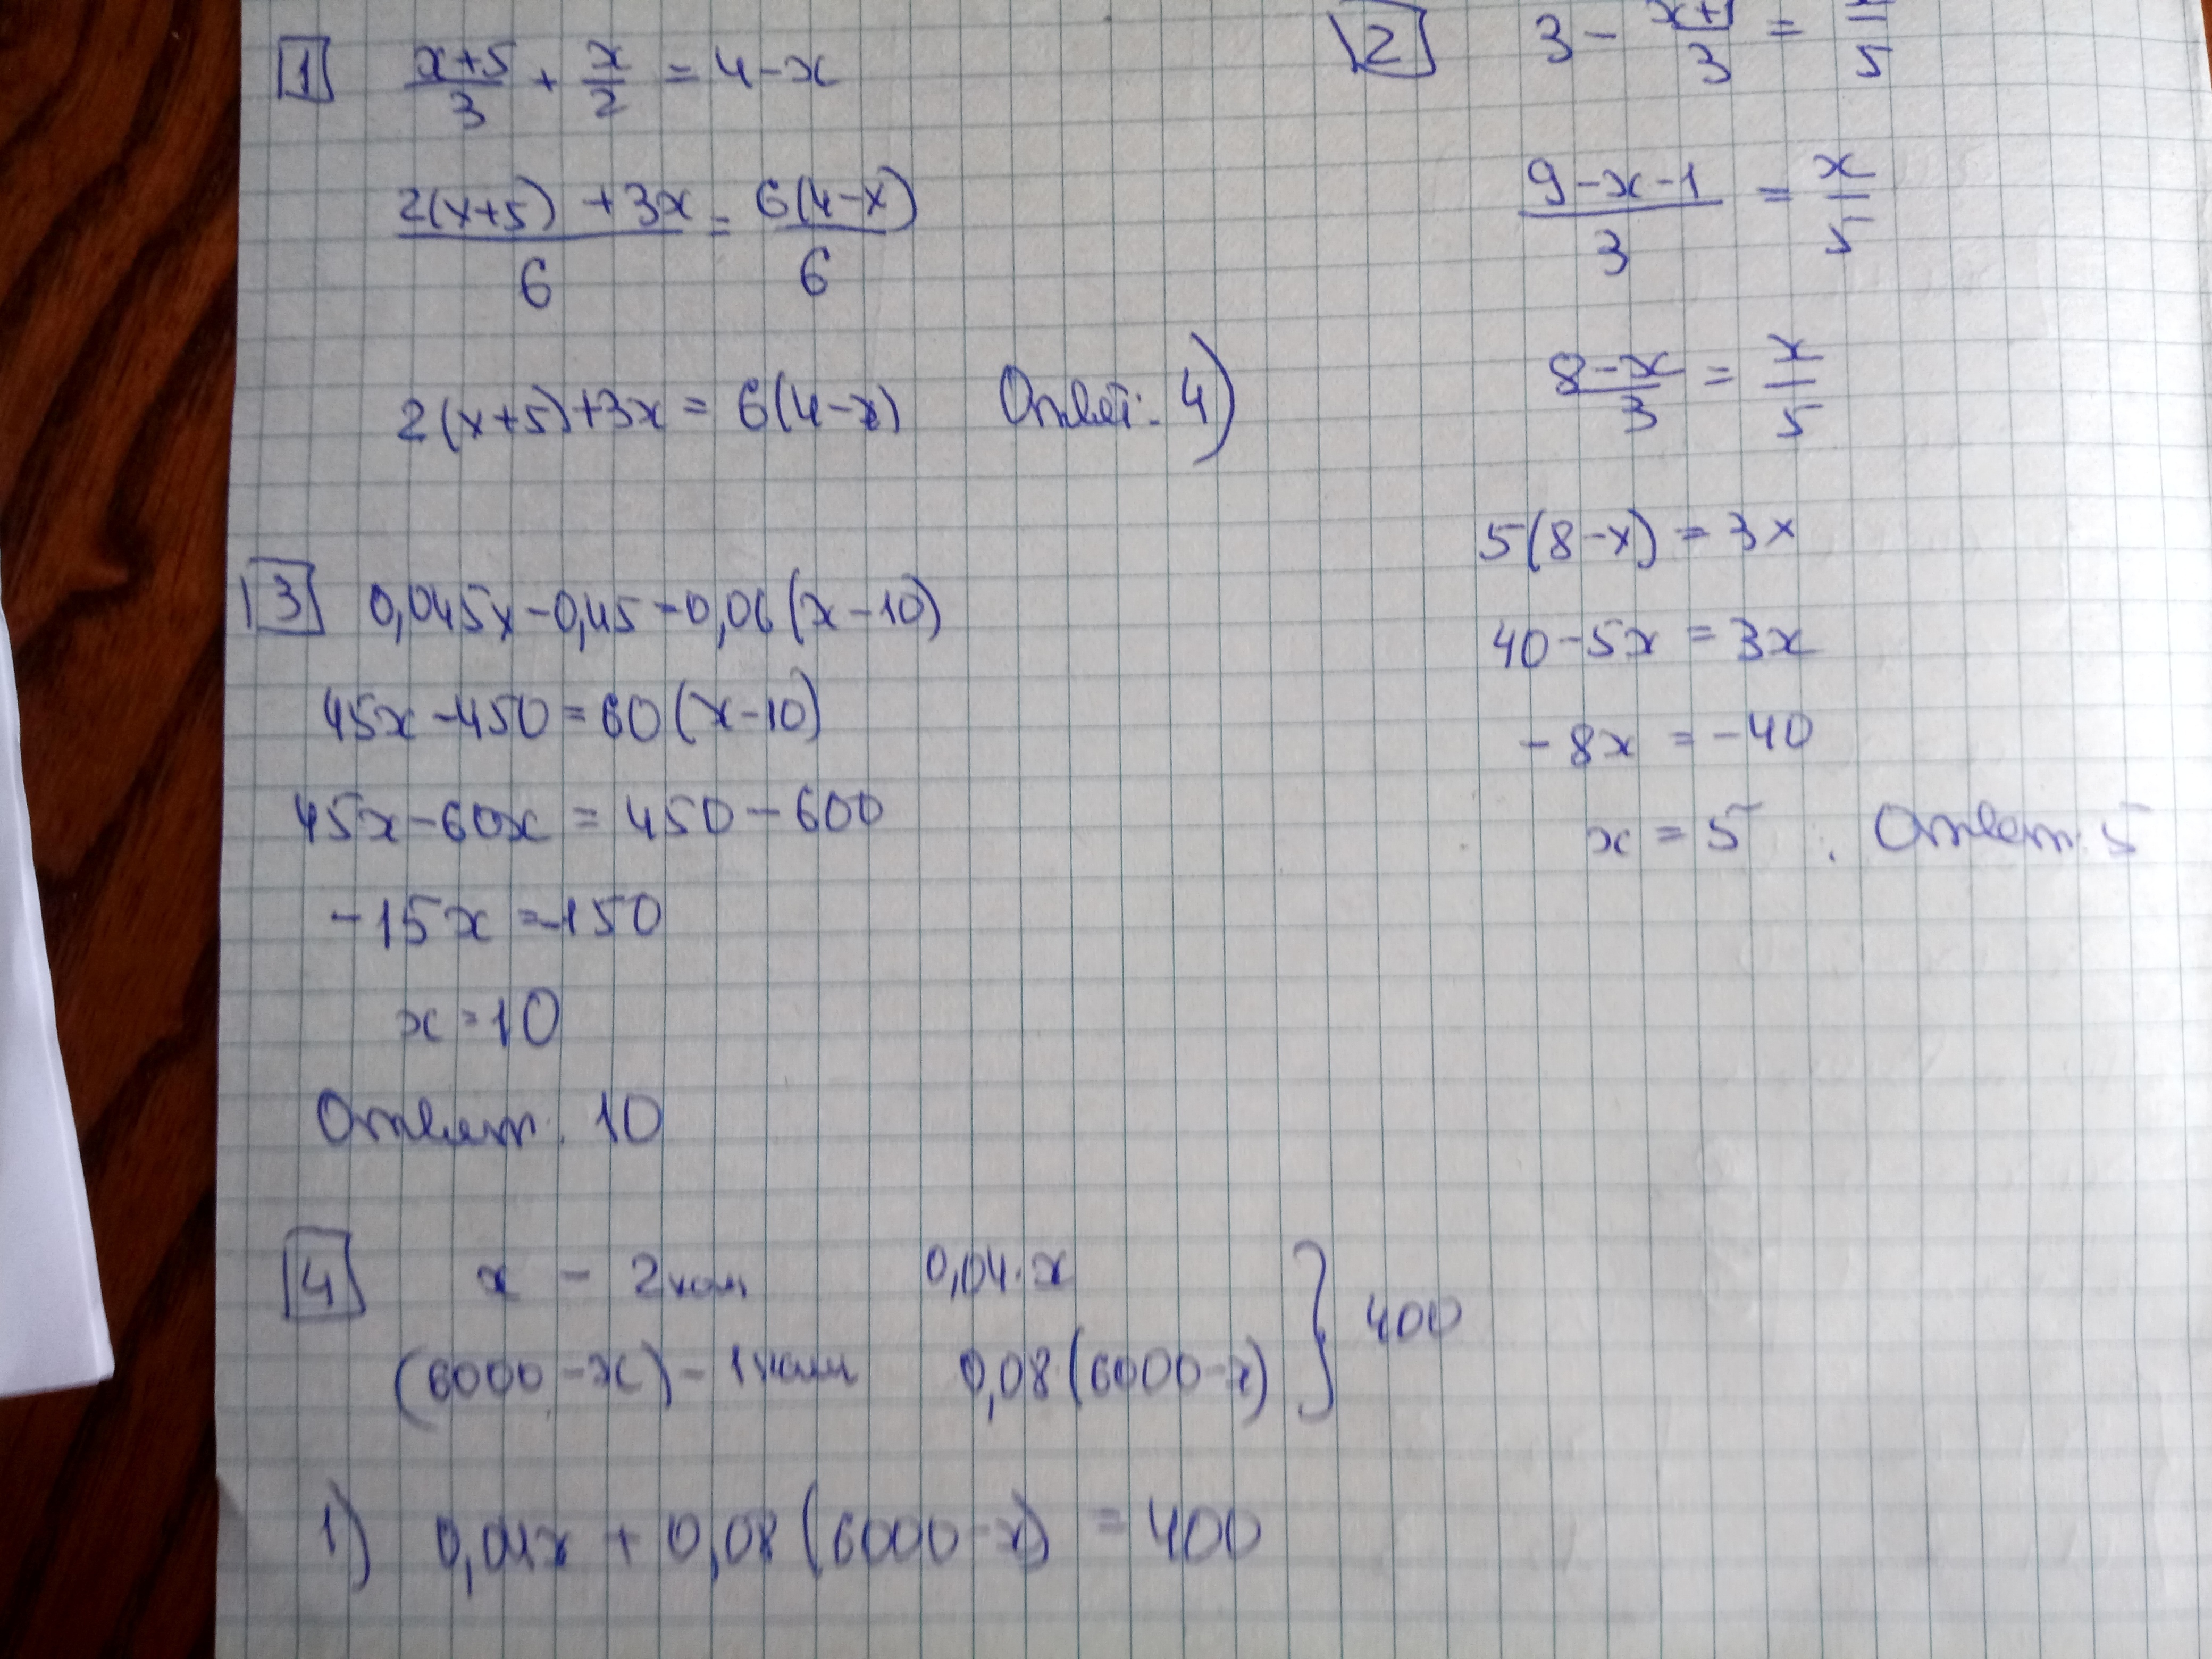 1 (x+5)/3 + x/2 = 4-x
(2(x+5) + 3x)/6 = 6(4-x)/6
2(x+5)+3x = 6(4-x) Ответ: 4)
2 3 - /3 = /5
(9-x-1)/3 = x/5
(8-x)/3 = x/5
5(8-x) = 3x
40-5x = 3x
-8x = -40
x = 5. Ответ: 5
3 0,045x-0,45=0,06(x-10)
45x-450=60(x-10)
45x-60x = 450-600
-15x=-150
x=10
Ответ. 10
4 x - 2 ком 0,04·x } 400
(6000-x) - 1 ком 0,08(6000-x)
1) 0,04x + 0,08(6000-x) = 400